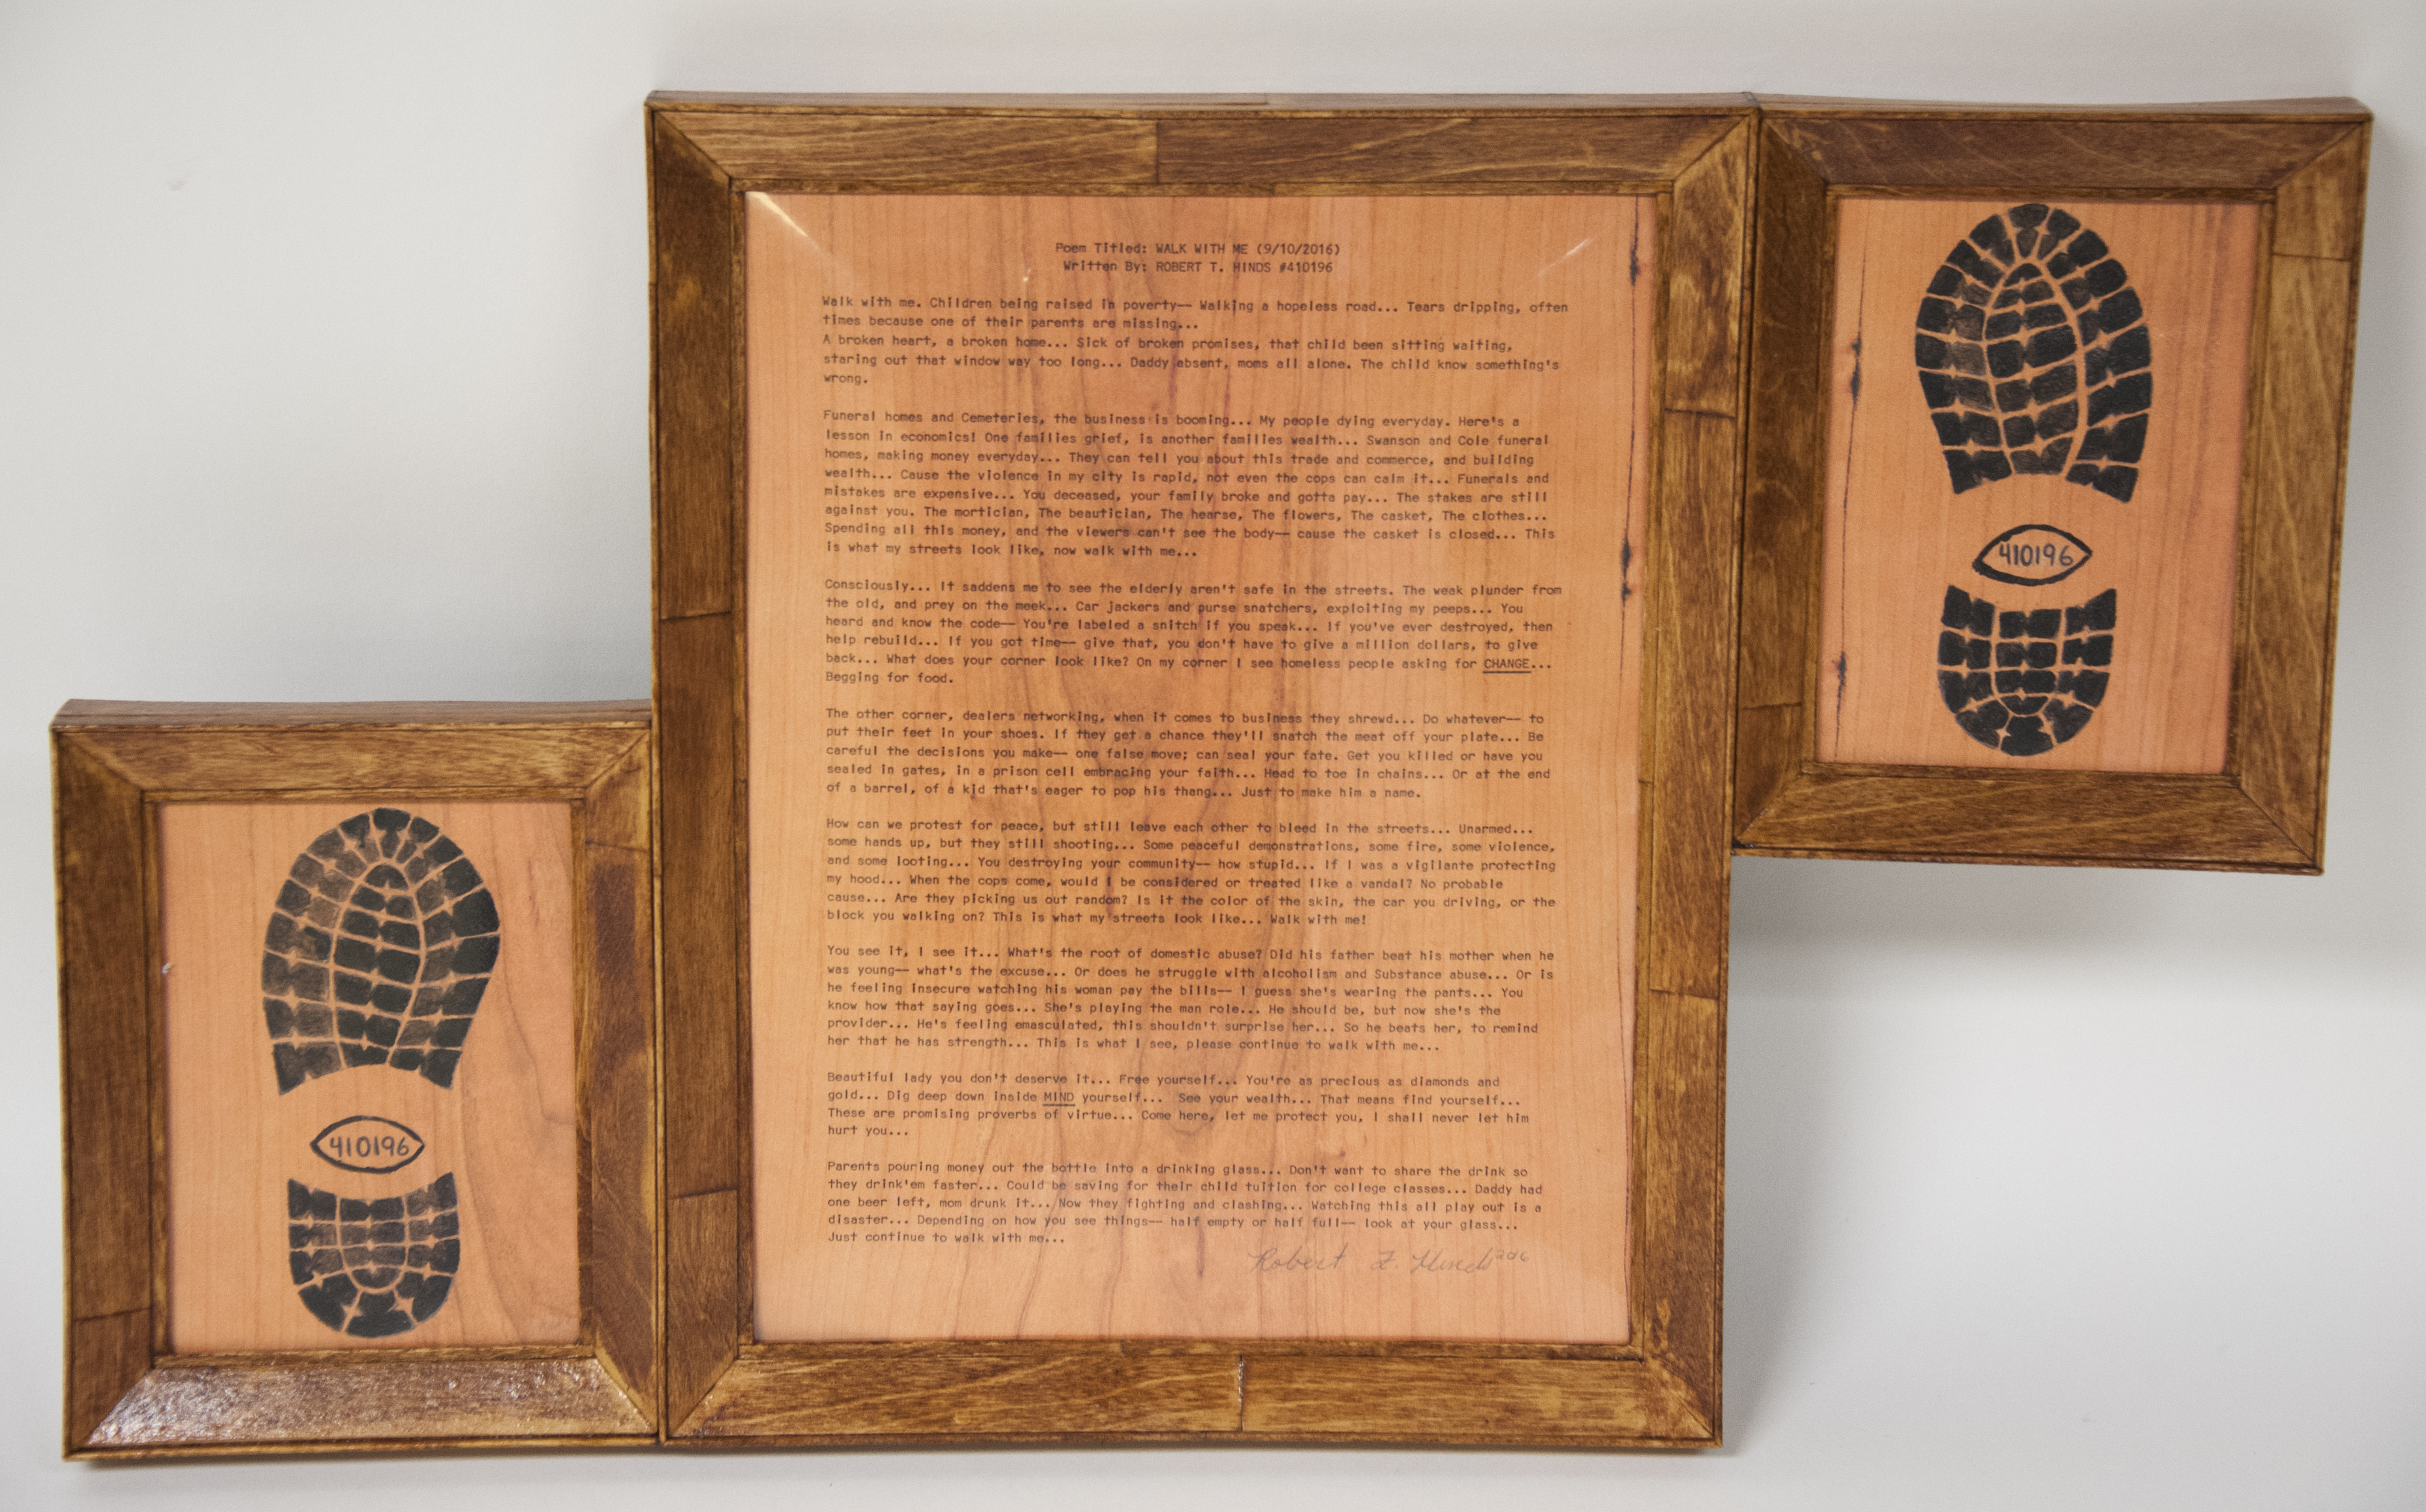 Poem Titled: WALK WITH ME (9/10/2016)
Written By: ROBERT T. HINDS #410196
Walk with me. Children being raised in poverty-- Walking a hopeless road... Tears dripping, often
times because one of their parents are missing...
A broken heart, a broken home... Sick of broken promises, that child been sitting waiting,
staring out that window way too long... Daddy absent, moms all alone. The child know something's
wrong.
Funeral homes and Cemeteries, the business is booming... My people dying everyday. Here's a
lesson in economics! One families grief, is another families wealth... Swanson and Cole funeral
homes, making money everyday... They can tell you about this trade and commerce, and building
wealth... Cause the violence in my city is rapid, not even the cops can calm it... Funerals and
mistakes are expensive... You deceased, your family broke and gotta pay... The stakes are still
against you. The mortician, The beautician, The hearse, The flowers, The casket, The clothes...
Spending all this money, and the viewers can't see the body-- cause the casket is closed... This
is what my streets look like, now walk with me...
Consciously... It saddens me to see the elderly aren't safe in the streets. The weak plunder from
the old, and prey on the meek... Car jackers and purse snatchers, exploiting my peeps... You
heard and know the code-- You're labeled a snitch if you speak... If you've ever destroyed, then
help rebuild... If you got time-- give that, you don't have to give a million dollars, to give
back... What does your corner look like? On my corner I see homeless people asking for CHANGE...
Begging for food.
The other corner, dealers networking, when it comes to business they shrewd... Do whatever-- to
put their feet in your shoes. If they get a chance they'll snatch the meat off your plate... Be
careful the decisions you make-- one false move; can seal your fate. Get you killed or have you
sealed in gates, in a prison cell embracing your faith... Head to toe in chains... Or at the end
of a barrel, of a kid that's eager to pop his thang... Just to make him a name.
How can we protest for peace, but still leave each other to bleed in the streets... Unarmed...
some hands up, but they still shooting... Some peaceful demonstrations, some fire, some violence,
and some looting... You destroying your community-- how stupid... If I was a vigilante protecting
my hood... When the cops come, would I be considered or treated like a vandal? No probable
cause... Are they picking us out random? Is it the color of the skin, the car you driving, or the
block you walking on? This is what my streets look like... Walk with me!
You see it, I see it... What's the root of domestic abuse? Did his father beat his mother when he
was young-- what's the excuse... Or does he struggle with alcoholism and Substance abuse... Or is
he feeling insecure watching his woman pay the bills-- I guess she's wearing the pants... You
know how that saying goes... She's playing the man role... He should be, but now she's the
provider... He's feeling emasculated, this shouldn't surprise her... So he beats her, to remind
her that he has strength... This is what I see, please continue to walk with me...
Beautiful lady you don't deserve it... Free yourself... You're as precious as diamonds and
gold... Dig deep down inside MIND yourself... See your wealth... That means find yourself...
These are promising proverbs of virtue... Come here, let me protect you, I shall never let him
hurt you...
Parents pouring money out the bottle into a drinking glass... Don't want to share the drink so
they drink'em faster... Could be saving for their child tuition for college classes... Daddy had
one beer left, mom drunk it... Now they fighting and clashing... Watching this all play out is a
disaster... Depending on how you see things-- half empty or half full-- look at your glass...
Just continue to walk with me...
Robert T. Hinds 2016
410196
410196